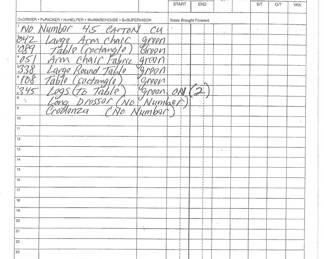 START END S/T O/T W/H
D=DRIVER • P=PACKER • H=HELPER • W=WAREHOUSE • S=SUPERVISOR Totals Brought Forward
1 No Number 45 CARTON CU
2 042 Large Arm chair green
3 089 Table (rectangle) green
4 051 Arm Chair Fabric green
5 338 Large Round Table green
6 108 Table (rectangle) green
7 345 Legs (To Table) green ON (2)
8 Long Dresser (No Number)
9 Credenza (No Number)
10
11
12
13
14
15
16
17
18
19
20
21
22
23